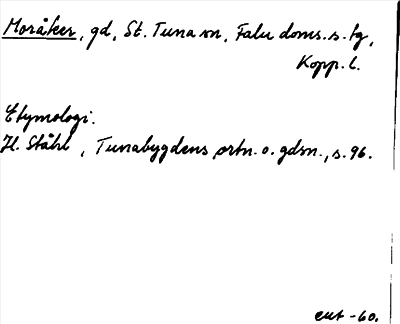 Moråker, gd, St. Tuna sn, Falu doms.s.tg,
Kopp. l.
Etymologi.
H. Ståhl, Tunabygdens ortn. o. gdsn., s. 96.
eut -60.